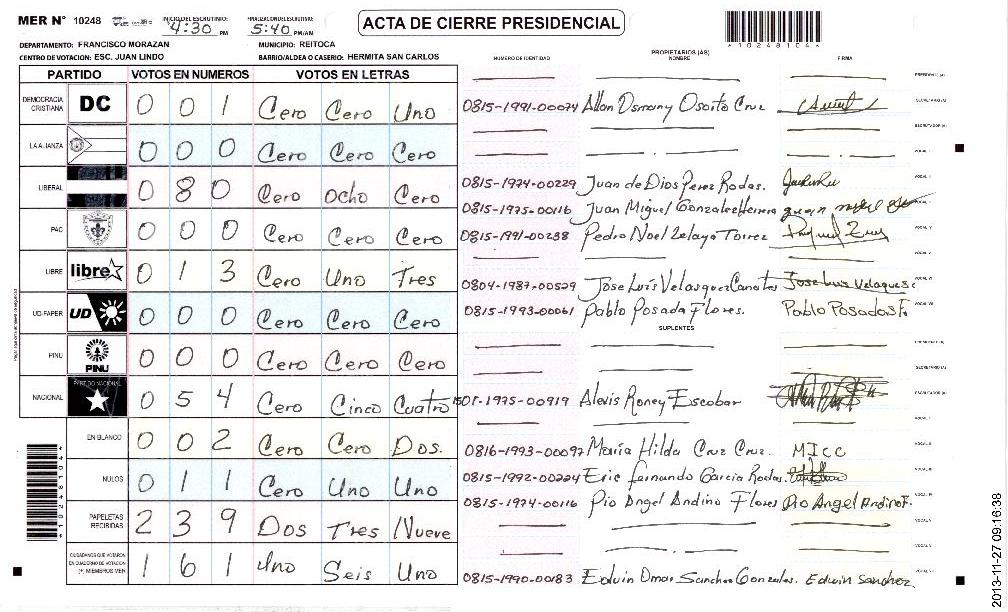 MER Nº 10248 INICIO DEL ESCRUTINIO: 4:30 PM FINALIZACION DEL ESCRUTINIO: 5:40 PM/AM ACTA DE CIERRE PRESIDENCIAL
DEPARTAMENTO: FRANCISCO MORAZAN MUNICIPIO: REITOCA
CENTRO DE VOTACION: ESC. JUAN LINDO BARRIO/ALDEA O CASERIO: HERMITA SAN CARLOS
*10248104*
NUMERO DE IDENTIDAD PROPIETARIOS (AS) NOMBRE FIRMA
PARTIDO VOTOS EN NUMEROS VOTOS EN LETRAS
PRESIDENTE (A)
DEMOCRACIA CRISTIANA DC 0 0 1 Cero Cero Uno
0815-1991-00074 Allan Osmany Osorto Cruz SECRETARIO (A)
ESCRUTADOR (A)
LA ALIANZA 0 0 0 Cero Cero Cero
VOCAL I
LIBERAL 0 8 0 Cero Ocho Cero
0815-1974-00229 Juan de Dios Perez Rodas.
0815-1975-00116 Juan Miguel Gonzales Herrera
PAC 0 0 0 Cero Cero Cero
0815-1991-00238 Pedro Noel Zelaya Torrez
LIBRE libre 0 1 3 Cero Uno Tres
0804-1987-00529 Jose Luis Velasquez Canales Jose Luis Velasques
UD-FAPER UD 0 0 0 Cero Cero Cero
0815-1993-00061 Pablo Posada Flores. Pablo Posadas F.
SUPLENTES
PINU PINU 0 0 0 Cero Cero Cero
PRESIDENTE (A)
SECRETARIO (A)
NACIONAL PARTIDO NACIONAL 0 5 4 Cero Cinco Cuatro
1501-1975-00919 Alexis Roney Escobar ESCRUTADOR (A)
EN BLANCO 0 0 2 Cero Cero Dos.
0816-1993-00097 Maria Hilda Cruz Cruz. MICC
NULOS 0 1 1 Cero Uno Uno
0815-1992-00224 Eric Fernando Garcia Rodas.
0815-1974-00116 Pio Angel Andino Flores Pio Angel Andino F.
PAPELETAS RECIBIDAS 2 3 9 Dos Tres Nueve
CIUDADANOS QUE VOTARON EN CUADERNO DE VOTACION (+) MIEMBROS MER 1 6 1 Uno Seis Uno
0815-1990-00183 Edwin Omar Sanchez Gonzales. Edwin Sanchez
2013-11-27 09:16:38